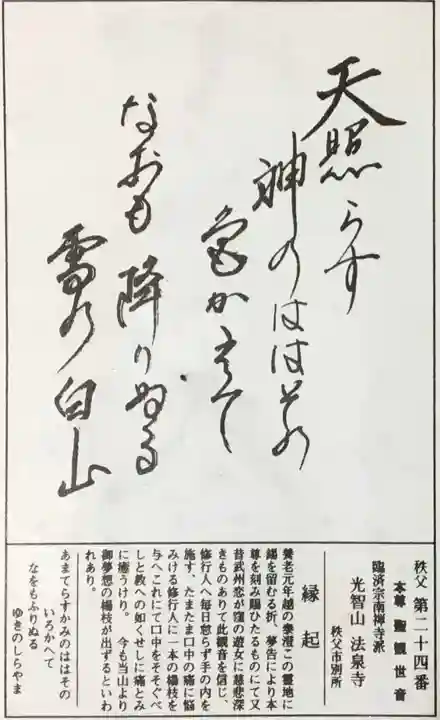 天照らす
神のははその
色かへて
なおも降りぬる
雪の白山
秩父 第二十四番
本尊 聖観世音
臨済宗南禅寺派
光智山 法泉寺
秩父市別所
縁起
養老元年越の泰澄この霊地に
錫を留むる折、夢告により本
尊を刻み賜ひたるものにて又
昔武州恋が窪の遊女に慈悲深
きものありて此観音を信じ、
修行人へ毎日怠らず手の内を
施す、たまたま口中の痛に悩
みける修行人に一本の楊枝を
与へこれにて口中をそそぐべ
しと教への如くせしに痛とみ
に癒うけり。 今も当山より
御夢想の楊枝が出ずるといわ
れあり。
あまてらすかみのははその
いろかへて
なをもふりぬる
ゆきのしらやま